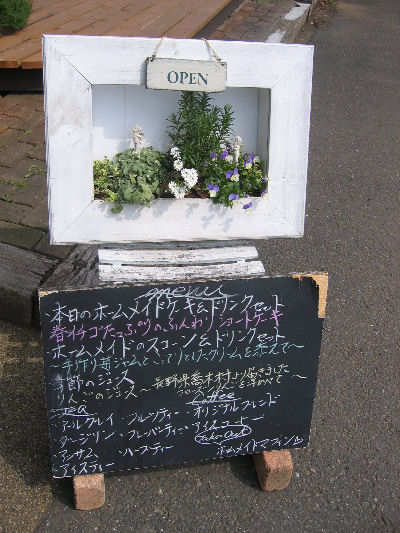 OPEN
menu
・本日のホームメイドケーキ&ドリンクセット
春イチゴたっぷりのふんわりショートケーキ
・ホームメイドのスコーン&ドリンクセット
〜手作り苺ジャムとこってりクリームを添えて〜
季節のジュース
りんごのジュース 〜長野県喬木村より届きました
フローズンりんごを浮かべて〜
Tea
Coffee
・アールグレイ ・フルーツティー ・オリジナルブレンド
・ダージリン ・フレーバーティー ・アイスコーヒー
・アッサム ・ハーブティー
Take Out
・アイスティー
ホームメイドマフィン